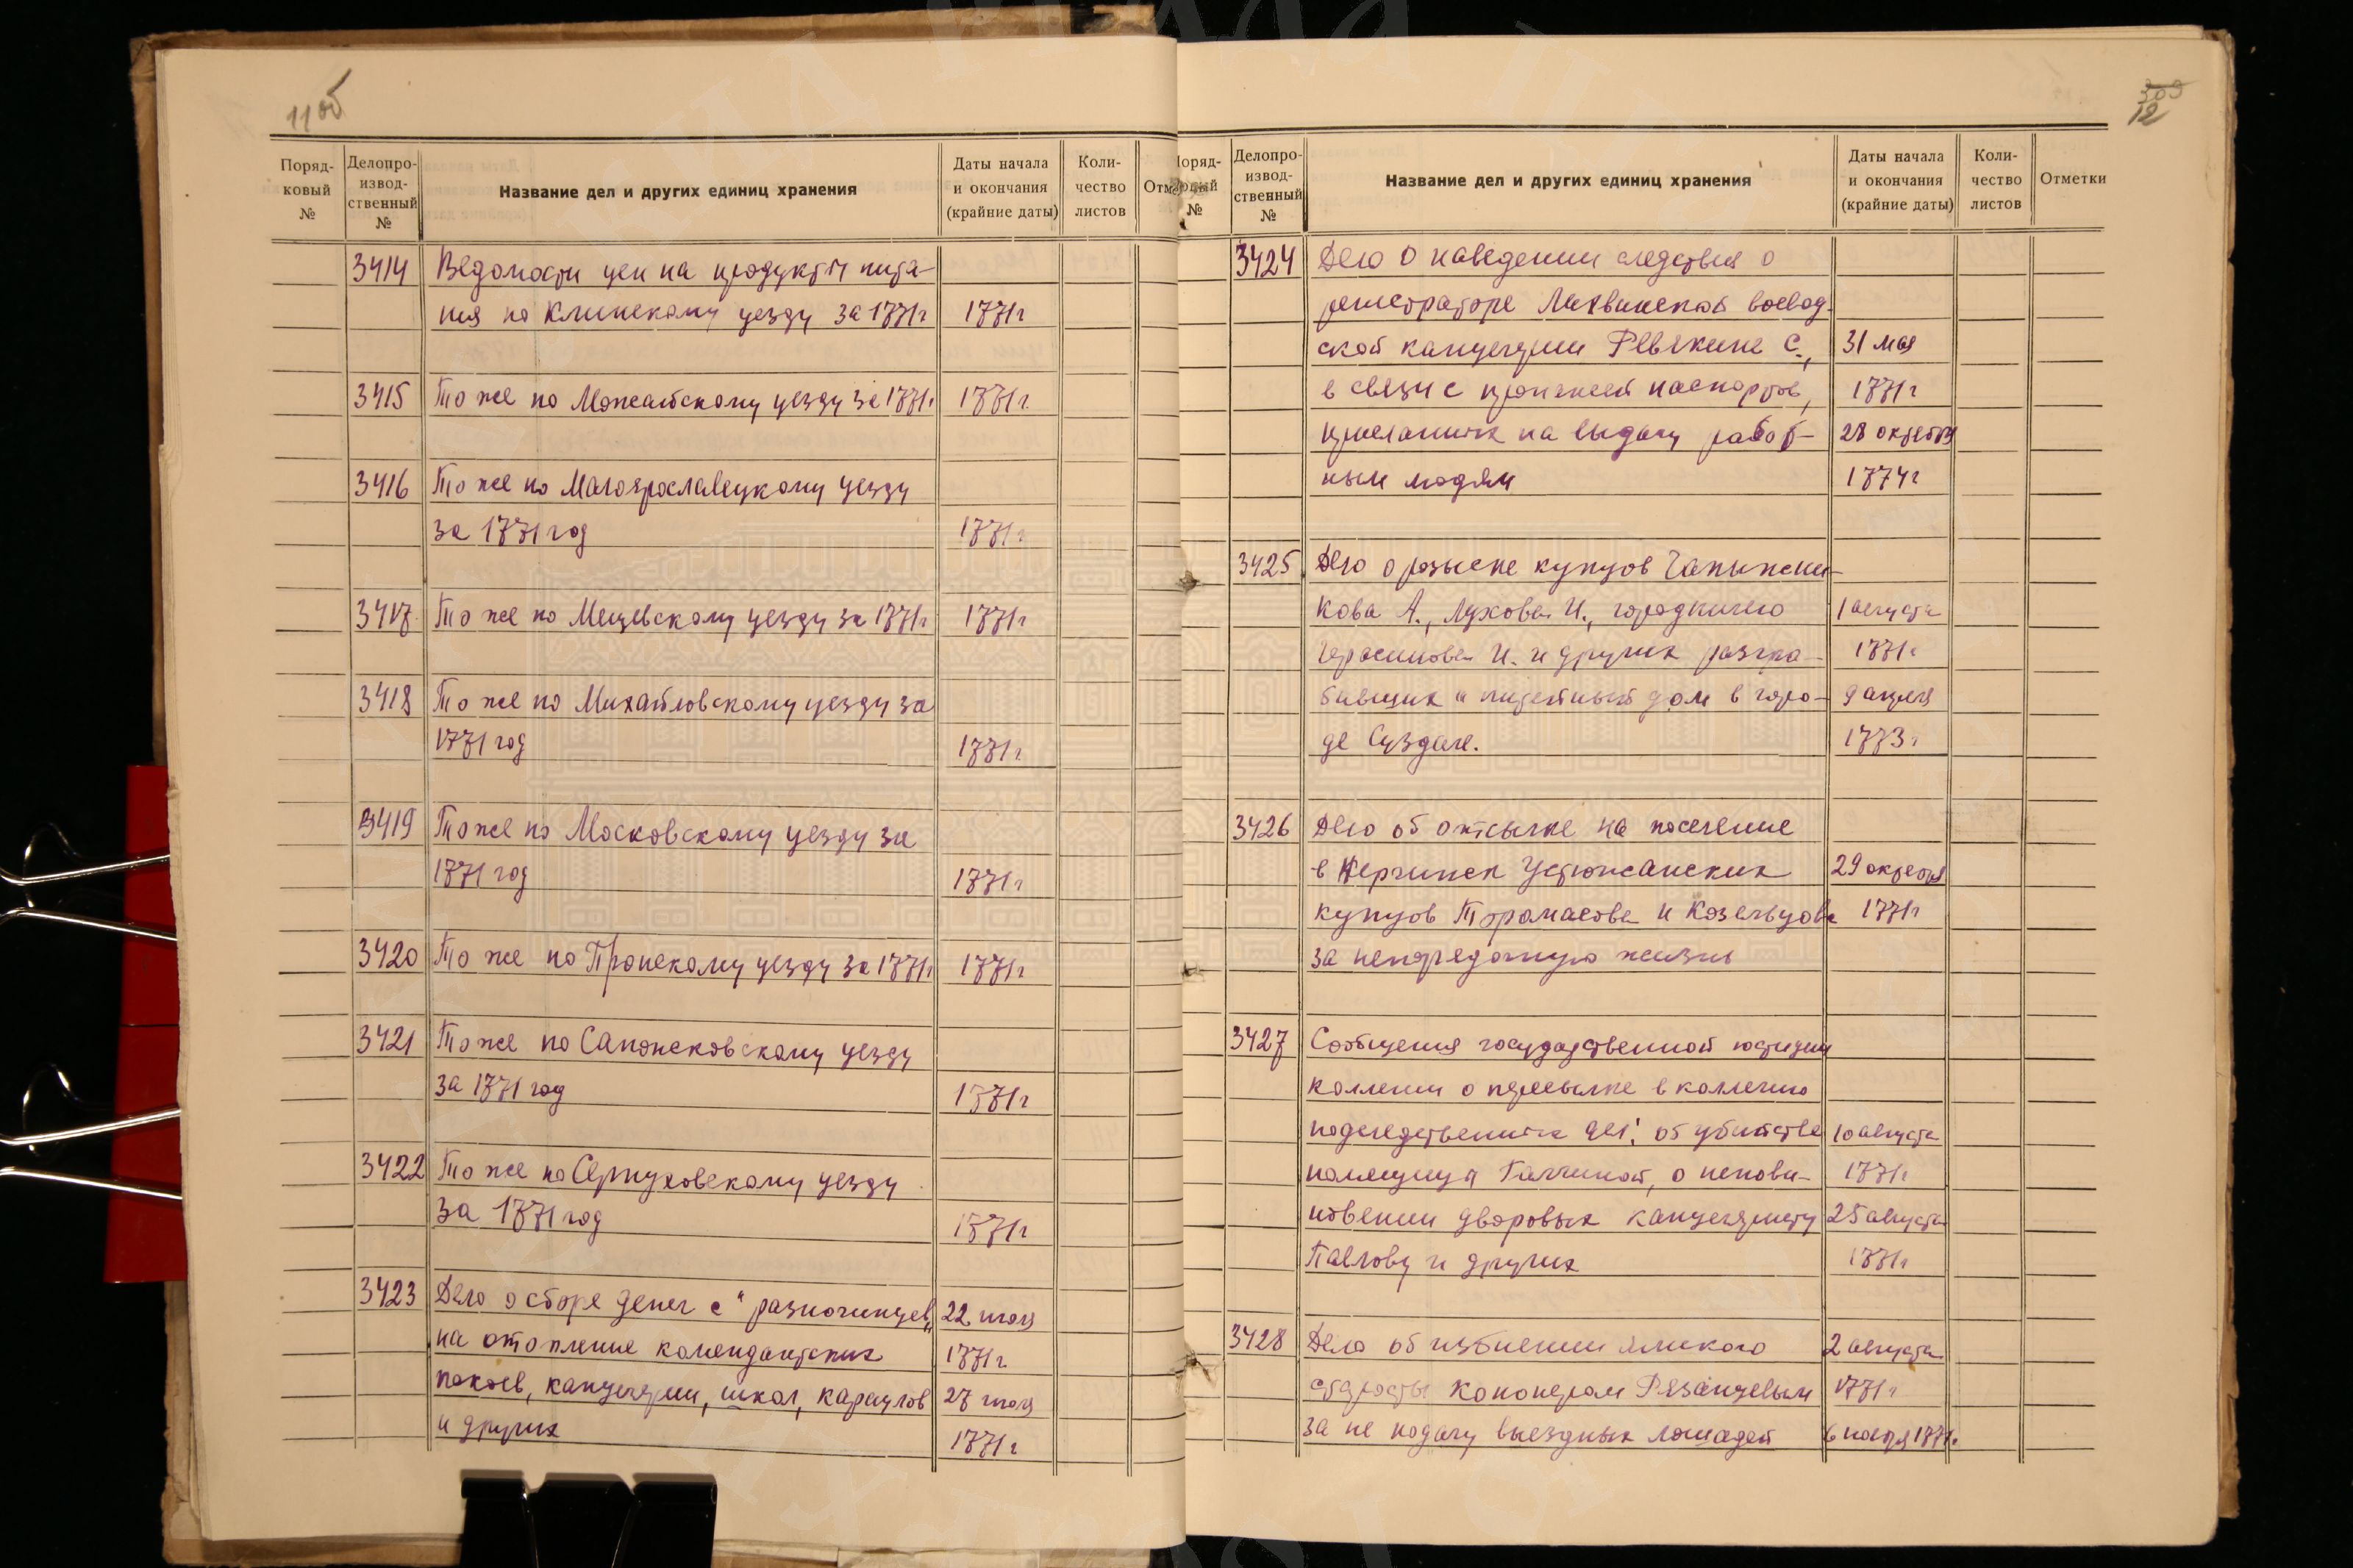 11об
Поряд-
ковый
№
Делопро-
извод-
ственный
№
Название дел и других единиц хранения
Даты начала
и окончания
(крайние даты)
Коли-
чество
листов
3414 Ведомости цен на продукты пита-
ния по Клинскому уезду за 1771г 1771г
3415 То же по Можайскому уезду за 1771г. 1771г.
3416 То же по Малоярославецкому уезду
за 1771 год 1771г
3417 То же по Мещевскому уезду за 1771г. 1771г
3418 То же по Михайловскому уезду за
1771 год 1771г.
3419 То же по Московскому уезду за
1771 год 1771г
3420 То же по Пронскому уезду за 1771г. 1771г
3421 То же по Сапожковскому уезду
за 1771 год 1771г
3422 То же по Серпуховскому уезду
за 1771 год 1771г
3423 Дело о сборе денег с "разночинцев" 22
на отопление комендантских 1771г.
покоев, канцелярии, школ, караулов 27
и других 1771г
309
12
Поряд-
ковый
№
Делопро-
извод-
ственный
№
Название дел и других единиц хранения
Даты начала
и окончания
(крайние даты)
Коли-
чество
листов
Отметки
3424 Дело о наведении следствия о
регистраторе Лихвинской воевод-
ской канцелярии Ревякине С., 31 мая
в связи с пропажей паспортов, 1771г
присланных на выдачу работ- 28 октября
ным людям 1774г
3425 Дело о розыске купцов
кова А., Лухова И., городничего 1 августа
Герасимова И. и других разгра- 1771г
бивших питейный дом в горо- 9 апреля
де Суздале. 1773г
3426 Дело об отсылке на поселение
в Нерчинск Устюжанских 29 октября
купцов и Козельцова 1771г
за непорядочную жизнь
3427 Сообщения государственной юстиции
коллегии о пересылке в коллегию
подследственных дел: об убийстве 10 августа
помещицы , о непови- 1771г
новении дворовых канцеляристу 25 августа
Павлову и других 1771г
3428 Дело об избиении ямского 2 августа
старосты Рязанцевым 1771г
за не подачу выездных лошадей 6 ноября 1771г.